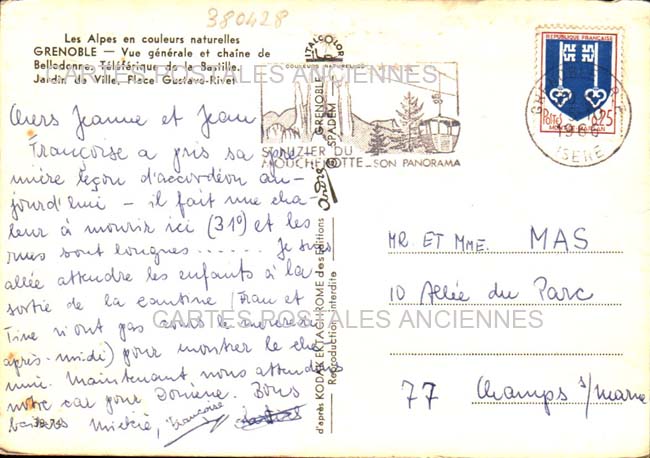 380428
Les Alpes en couleurs naturelles
GRENOBLE — Vue générale et chaîne de
Belledonne, Téléférique de la Bastille,
Jardin de Ville, Place Gustave-Rivet
CARTES POSTALES ANCIENNES
Chers Jeanne et Jean
Françoise a pris sa pre-
mière leçon d'accordéon au-
jourd'hui - il fait une cha-
leur à mourir ici (31°) et les
rues sont longues...... Je suis
allée attendre les enfants à la
sortie de la cantine (Fran et
Tine n'ont pas cours le mercredi
après-midi) pour montrer le che-
min. Maintenant nous attendons
notre car pour Domène. Bons
baisers
Françoise
ITALCOLOR
COULEURS NATURELLES
GRENOBLE
SPADEM
d'après KODAK EKTACHROME des Editions
Reproduction interdite
ST NIZIER DU
MOUCHEROTTE - SON PANORAMA
REPUBLIQUE FRANÇAISE
Postes
0,25
MONT-DE-MARSAN
ISERE
MR ET MME. MAS
10 Allée du Parc
77 Champs s/marne
CARTES POSTALES ANCIENNES